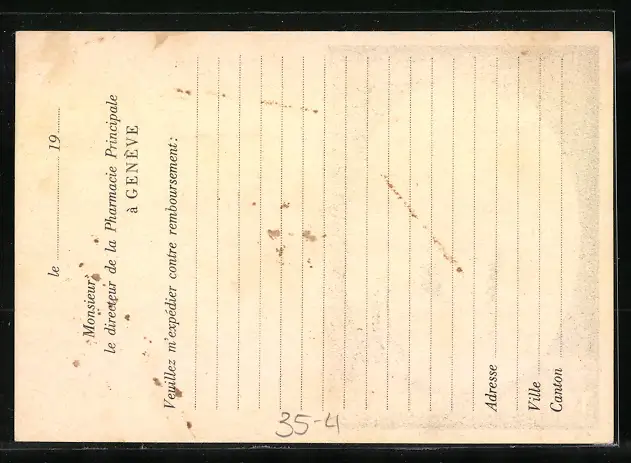 le .................... 19 .......
Monsieur
le directeur de la Pharmacie Principale
à GENÈVE
Veuillez m'expédier contre remboursement:
Adresse
Ville
Canton
35-4